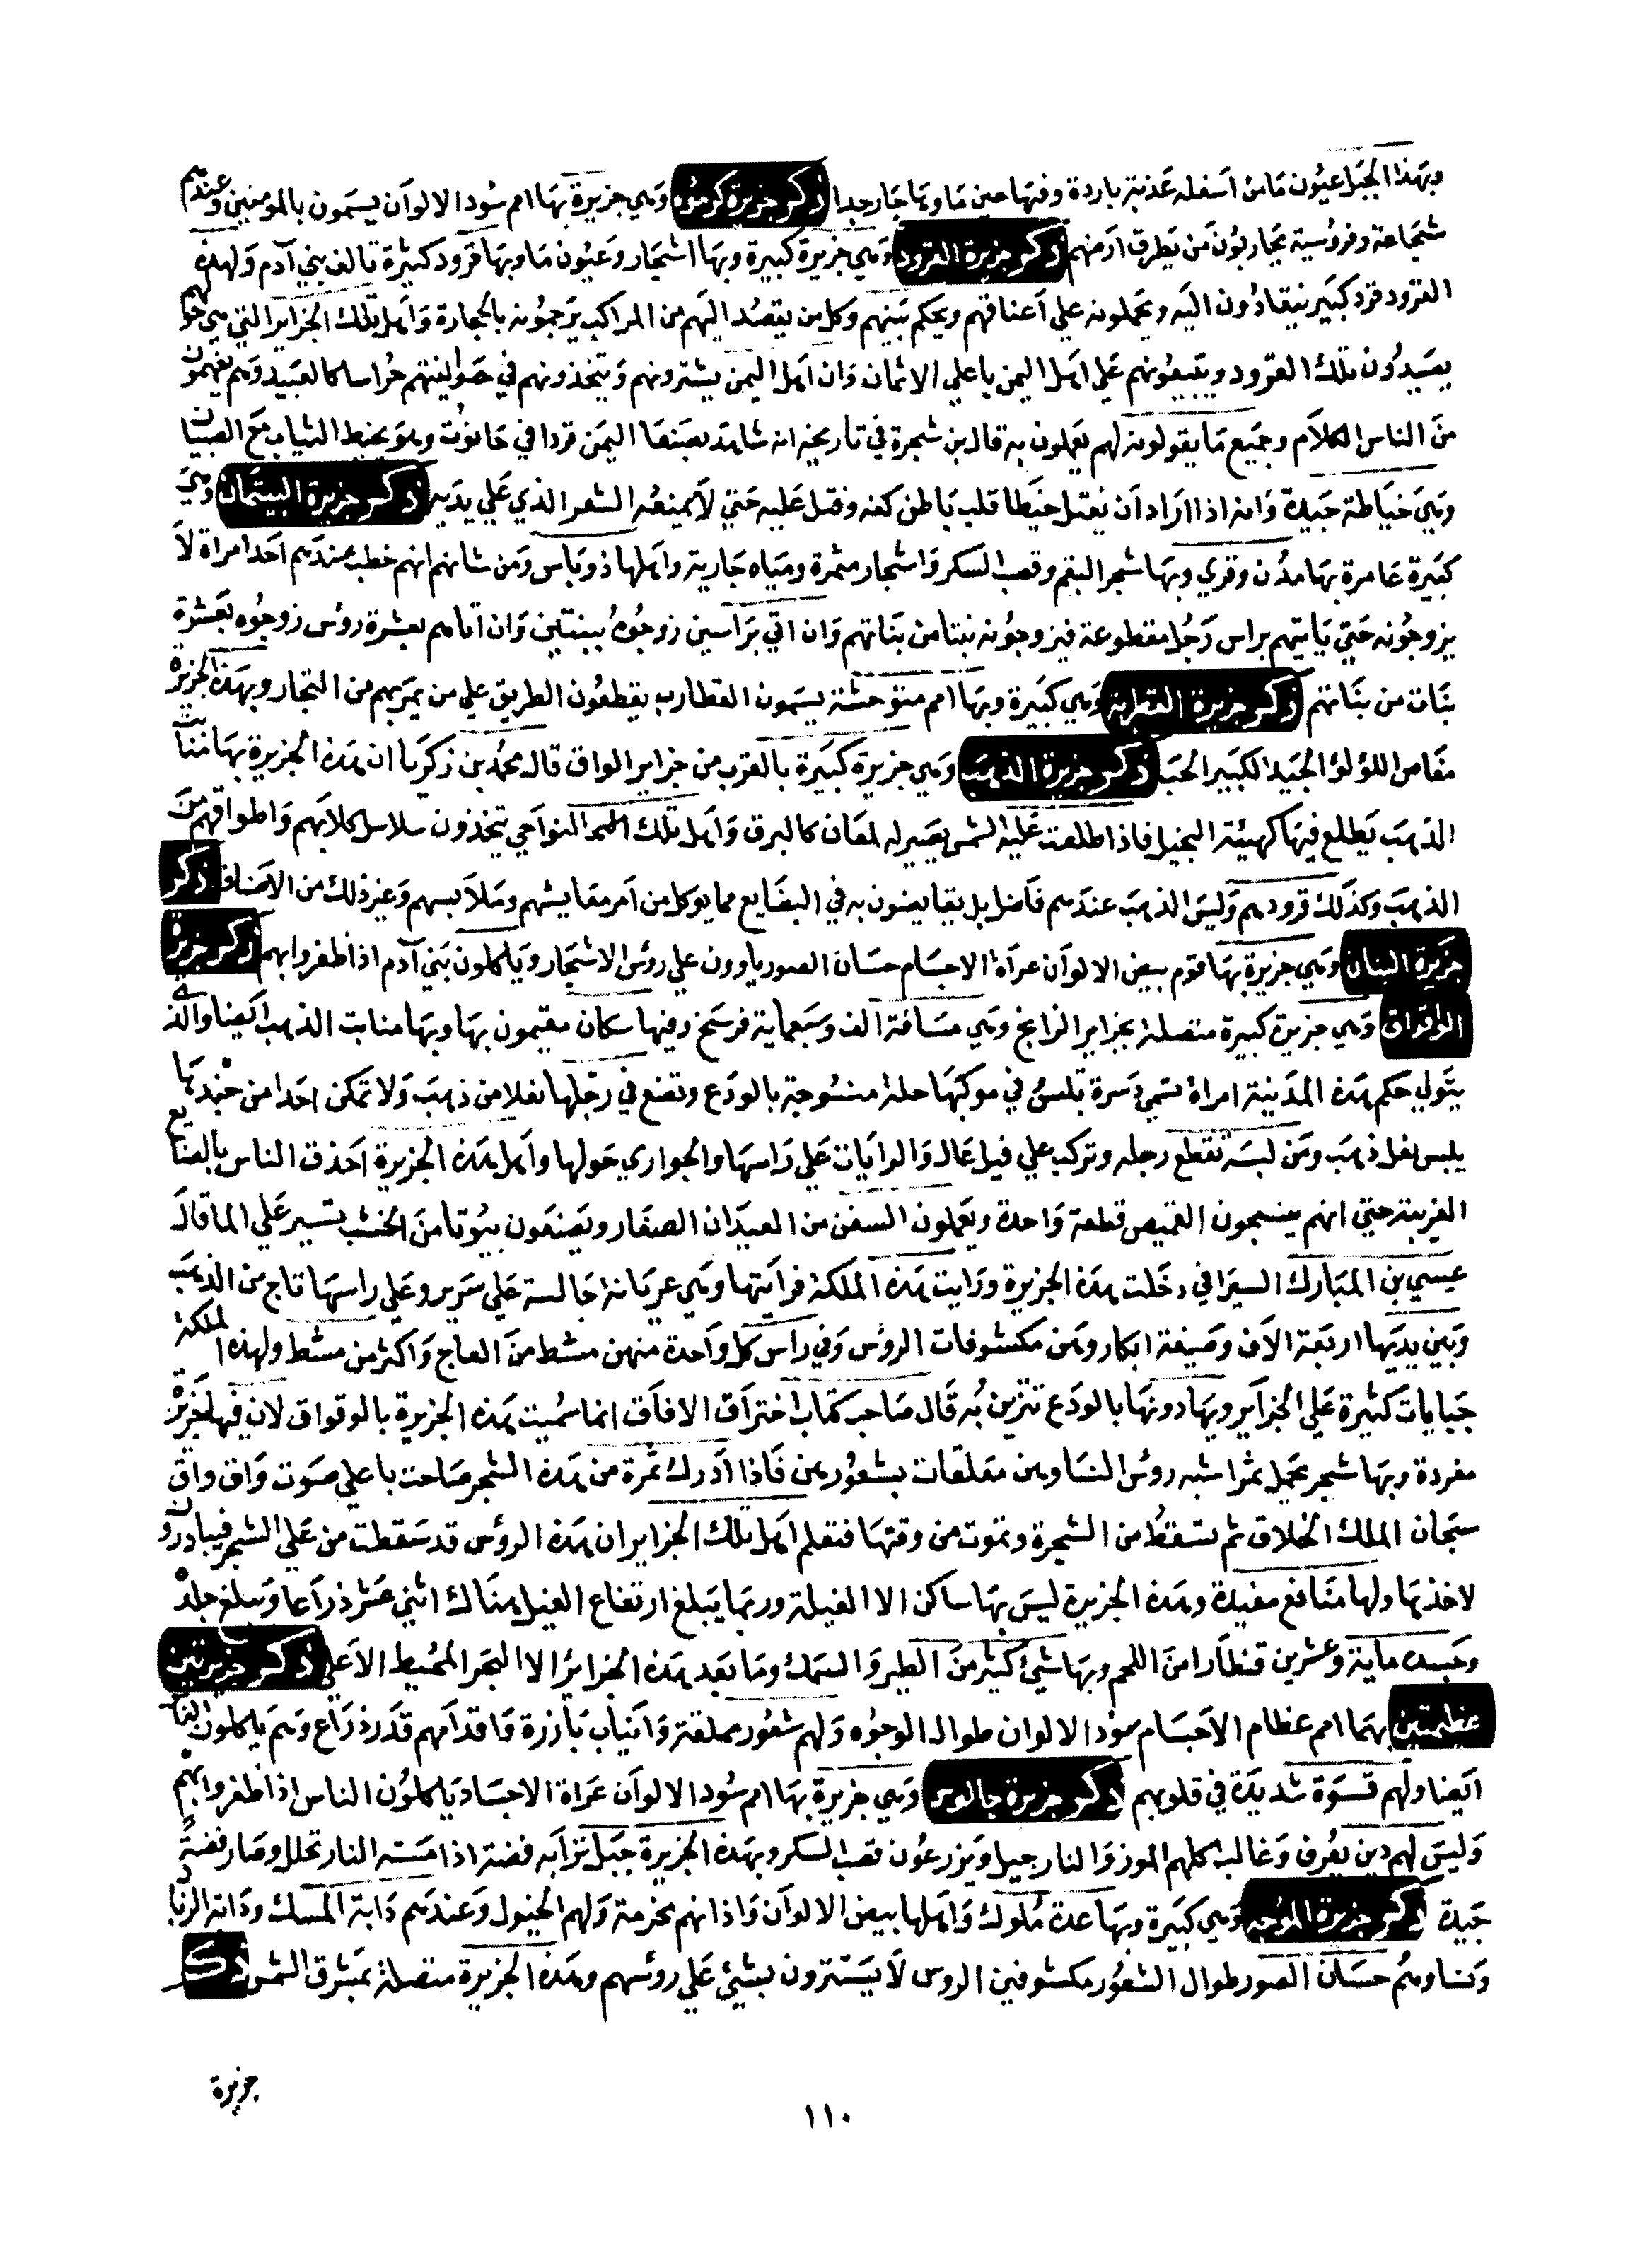 وبهذا الجبل عيون ما من اسفله عذبة باردة وفيها عين ماوها حار جدا ذكر جزيرة كرموه وهي جزيرة بها امم سود الالوان يسمون بالمومنين وعندهم
شجاعة وفروسية يحاربون من يطرق ارضهم ذكر جزيرة القرود وهي جزيرة كبيرة وبها اشجار وعيون ما وبها قرود كثيرة تالف بني آدم ولهذه
القرود قرد كبير ينقادون اليه ويحملونه علي اعناقهم ويحكم بينهم وكل من يقصد اليهم من المراكب يرجمونه بالحجارة واهل تلك الجزاير التي هي حولهم
يصيدون تلك القرود ويبيعونهم علي اهل اليمن باعلي الاثمان وان اهل اليمن يشترونهم ويتخذونهم في حوانيتهم حراسا كالعبيد وهم يفهمون
من الناس الكلام وجميع ما يقولونه لهم يعملون به قال بن شجرة في تاريخه انه شاهد بصنعا اليمن قردا في حانوت وهو يخيط الثياب مع الصبيان
وهي خياطة جيدة وانه اذا اراد ان يفتل خيطا قلب باطن كفه وفتل عليه حتي لا يمنعه الشعر الذي علي يديه ذكر جزيرة البيتمان وهي
كبيرة عامرة بها مدن وقري وبها شجر البقم وقصب السكر واشجار مثمرة ومياه جارية واهلها ذو باس ومن شانهم انهم خطب عندهم احد امراة لا
يزوجونه حتي ياتيهم براس رجل مقطوعة فيزوجونه بنتا من بناتهم وان اتي براسين زوجوه ببنتين وان اتاهم بعشرة روس زوجوه بعشرة
بنات من بناتهم ذكر جزيرة القطربة وهي كبيرة وبها امم متوحشة يسمون القطارب يقطعون الطريق علي من يمر بهم من التجار وبهذه الجزيرة
مغاص اللؤلؤ الجيد الكبير الحب ذكر جزيرة الذهب وهي جزيرة كبيرة بالقرب من جزاير الواق قال محمد بن زكريا ان هذه الجزيرة بها منابت
الذهب يطلع فيها كهيئة النخيل فاذا طلعت عليه الشمس يصير له لمعان كالبرق واهل تلك النواحي يتخذون سلاسل كلابهم واطواقهم من
الذهب وكذلك قرودهم وليس الذهب عندهم فاضل بل يقايضون به في البضايع مما يوكل من امر معايشهم وملابسهم وغير ذلك من الاصناف ذكر
جزيرة البنان وهي جزيرة بها قوم بيض الالوان عراه الاجسام حسان الصور ياوون علي رؤس الاشجار وياكلون بني آدم اذا ظفروا بهم ذكر جزيرة
الوقواق وهي جزيرة كبيرة متصلة بجزاير الزابج وهي مسافة الف وسبعماية فرسخ وفيها سكان مقيمون بها وبها منابت الذهب ايضا والذي
يتولي حكم هذه المدينة امراة تسمي دسرة تلبس في موكبها حلة منسوجة بالودع وتضع في رجلها نعلا من ذهب ولا تمكن احدا من جندها
يلبس نعل ذهب ومن لبسه تقطع رجله وتركب علي فيل عال والرايات علي راسها والجواري حولها واهل هذه الجزيرة احذق الناس بالصنايع
الغريبة حتي انهم ينسجون القميص قطعة واحدة ويعملون السفن من العيدان الصغار ويصنعون بيوتا من الخشب تسير علي الما قال
عيسي بن المبارك السيرافي دخلت هذه الجزيرة ورايت هذه الملكة فرايتها وهي عريانة جالسة علي سرير وعلي راسها تاج من الذهب
وبين يديها اربعة الاف وصيفة ابكار وهن مكشوفات الروس وفي راس كل واحدة منهن مشط من العاج واكثر من مشط ولهذه الملكة
جبايات كثيرة علي الجزاير ويهادونها بالودع تتزين به قال صاحب كتاب اختراق الافاق انما سميت هذه الجزيرة بالوقواق لان فيها جزيرة
مفردة وبها شجر يحمل ثمرا شبه روس النسا وهن معلقات بشعورهن فاذا ادرك ثمرة من هذه الشجر صاحت باعلي صوت واق واق
سبحان الملك الخلاق ثم تسقط من الشجرة وتموت من وقتها فتعلم اهل تلك الجزاير ان هذه الروس قد سقطت من علي الشجر فيبادرون
لاخذها ولها منافع مفيدة وهذه الجزيرة ليس بها ساكن الا الفيلة وربما يبلغ ارتفاع الفيل هناك اثني عشر ذراعا ويبلغ جلده
وجسده ماية وعشرين قنطارا من اللحم وبها شئ كثير من الطير والسمك وما بعد هذه الجزاير الا البحر المحيط الاعلي ذكر جزيرتين
عظيمتين بهما امم عظام الاجسام سود الالوان طوال الوجوه ولهم شعور مملقة وانياب بارزة واقدامهم قدر ذراع وهم ياكلون الناس
ايضا ولهم قسوة شديدة في قلوبهم ذكر جزيرة جالوس وهي جزيرة بها امم سود الالوان عراة الاجساد ياكلون الناس اذا ظفروا بهم
وليس لهم دين يعرف وغالب اكلهم الموز والنارجيل ويزرعون قصب السكر وبهذه الجزيرة جبل ترابه فضة اذا مسته النار تحلل وصار فضة
جيدة ذكر جزيرة الموجه وهي كبيرة وبها عدة ملوك واهلها بيض الالوان واذانهم مخرمة ولهم الخيول وعندهم دابة المسك ودابة الزباد
ونساوهم حسان الصور طوال الشعور مكشوفين الروس لا يستترون بشئ علي رؤسهم وهذه الجزيرة متصلة بمشرق الشمس ذكر
جزيرة
١١٠